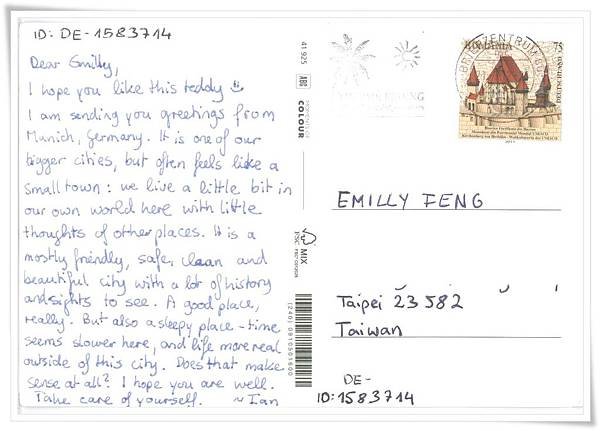 ID: DE-1583714
Dear Emilly,
I hope you like this teddy
I am sending you greetings from
Munich, Germany. It is one of our
bigger cities, but often feels like a
small town: we live a little bit in
our own world here with little
thoughts of other places. It is a
mostly friendly, safe, clean and
beautiful city with a lot of history
and sights to see. A good place,
really. But also a sleepy place - time
seems slower here, and life more real
outside of this city. Does that make
sense at all? I hope you are well.
Take care of yourself. ~ Ian
41 925
ABG
COLOUR
MIX
(240) 0910501600
BRIEFZENTRUM
ROMANIA 75
DEUTSCHLAND
EMILLY FENG
Taipei 23582
Taiwan
DE-
ID:1583714